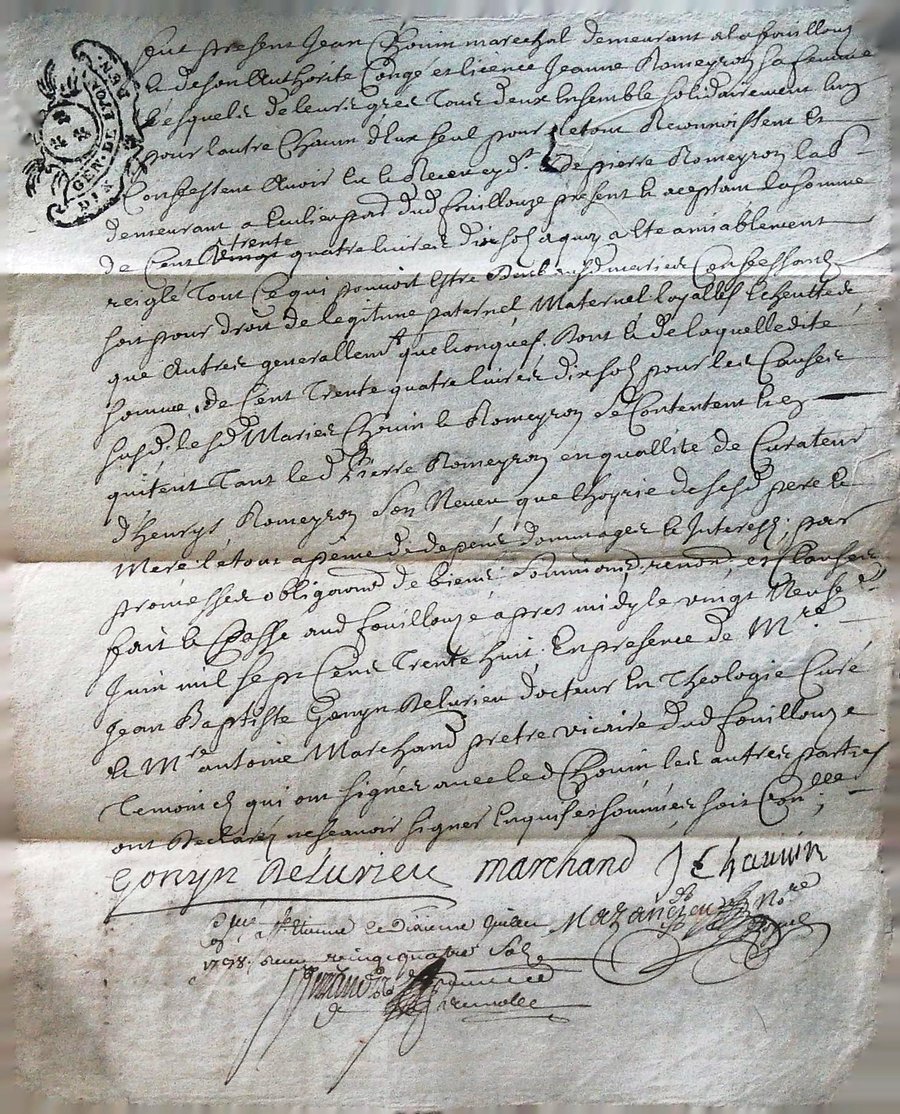 GEN. DE LYON
DIX
DEN.
fut present Jean Chovin marechal demeurant a la fouillouze
& de son Authorité Congé et licence Jeanne Romeyron sa femme
lesquels de leurs grez Tous deux Ensemble solidairement lun
pour lautre Chacun d'Eux seul pour le tout Reconnoissent Et
Confessent Avoir Eu & Receu cy dt. De pierre Romeyron lab
demeurant a
dud fouillouze present & aceptant la somme
de Cent trente quatre livres dix sols a quoy a Eté amiablement
reiglé Tout Ce qui pouvoit Estre mariés Confessants
soit pour droit de legitime paternel, Maternel loyalles Echeuttes
que Autres generallemt. quelconques. Dont & de laquelledite
somme, de Cent Trente quatre livres dix sols pour les Causes
susd. les sd Mariés Chovin & Romeyron se Contentent & en
quitent Tant led Pierre Romeyron en quallité de Curateur
d'Henrys Romeyron son Neveu que lhoyrie de sesd pere &
Mere le tout a peine de depens dommages & Interests; par
promesses obligaons de biens soumions, renons, et Clauses
fait & Passé aud fouillouze apres midy le vingt Neuf
Juin mil sept Cens Trente huit. En presence de Mre
Jean Baptiste Gonyn Delurieu docteur En Theologie Curé
& Mre antoine Marchand pretre vicaire dud fouillouze
Temoins qui ont signés avec led Chovin les autres parties
ont Declarés ne scavoir signer Enquis et sommés soit Conllé
Gonyn Delurieu marchand J Chauvin
a St. Etienne le dixieme Juillet Nore
1738. Receu vingt quatre sols